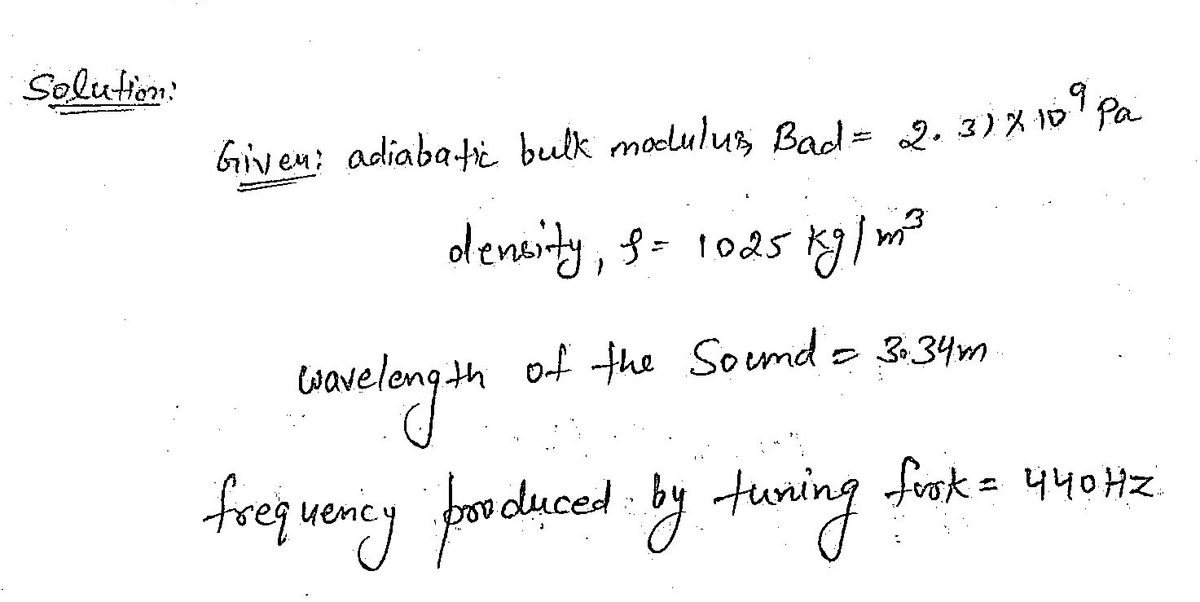 Solution:
Given: adiabatic bulk modulus, Bad = 2.31 × 10⁹ Pa
density, ρ = 1025 kg/m³
wavelength of the Sound = 3.34m
frequency produced by tuning fork = 440 Hz